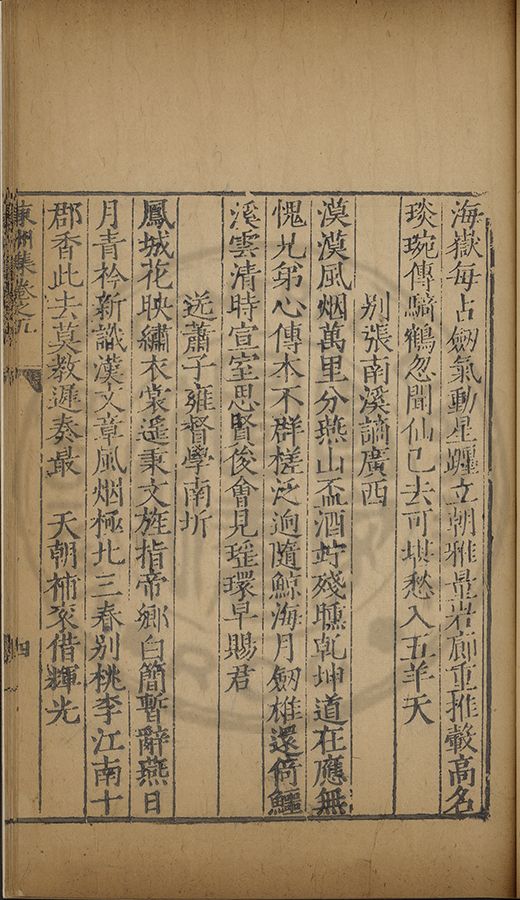 海嶽每占劒氣動星躔立朝雅量岩廊重推轂高名
琰琬傳騎鶴忽聞仙已去可堪愁入五羊天
别張南溪謫廣西
漠漠風烟萬里分燕山盃酒竚殘曛乾坤道在應無
愧兄弟心傳本不群槎泛逈隨鯨海月劒雄還倚鱷
溪雲清時宣室思賢俊會見瑶環早賜君
送蕭子雍督學南圻
鳳城花映繡衣裳遥秉文旌指帝鄉白簡暫辭燕日
月青衿新識漢文章風烟極北三春别桃李江南十
郡香此去莫教遲奏最 天朝補衮借輝光
東州集卷之九 四